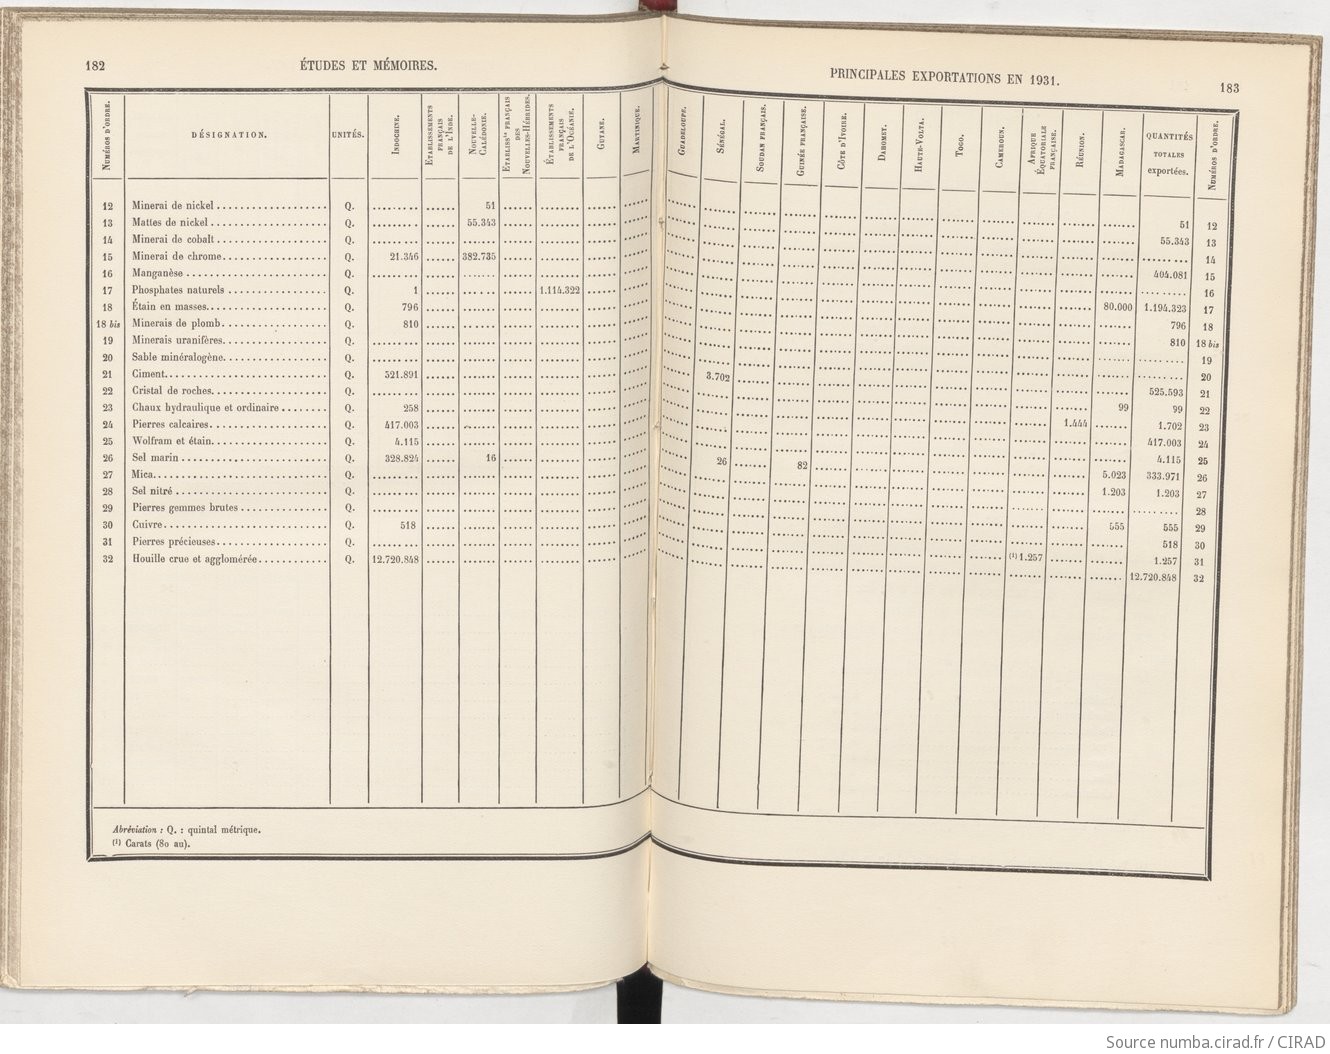 182
ÉTUDES ET MÉMOIRES.
NUMÉROS D'ORDRE.
DÉSIGNATION.
UNITÉS.
INDOCHINE.
ÉTABLISSEMENTS
FRANÇAIS
DE L'INDE.
NOUVELLE-
CALÉDONIE.
ÉTABLISSts FRANÇAIS
DES
NOUVELLES-HÉBRIDES.
ÉTABLISSEMENTS
FRANÇAIS
DE L'OCÉANIE.
GUYANE.
MARTINIQUE.
12 Minerai de nickel Q. 51
13 Mattes de nickel Q. 55.343
14 Minerai de cobalt Q.
15 Minerai de chrome Q. 21.346 382.735
16 Manganèse Q.
17 Phosphates naturels Q. 1 1.114.322
18 Étain en masses. Q. 796
18 bis Minerais de plomb Q. 810
19 Minerais uranifères. Q.
20 Sable minéralogène. Q.
21 Ciment. Q. 521.891
22 Cristal de roches. Q.
23 Chaux hydraulique et ordinaire Q. 258
24 Pierres calcaires Q. 417.003
25 Wolfram et étain. Q. 4.115
26 Sel marin Q. 328.824 16
27 Mica. Q.
28 Sel nitré Q.
29 Pierres gemmes brutes Q.
30 Cuivre Q. 518
31 Pierres précieuses Q.
32 Houille crue et agglomérée Q. 12.720.848
Abréviation : Q. : quintal métrique.
(1) Carats (80 au).
PRINCIPALES EXPORTATIONS EN 1931.
183
GUADELOUPE.
SÉNÉGAL.
SOUDAN FRANÇAIS.
GUINÉE FRANÇAISE.
CÔTE D'IVOIRE.
DAHOMEY.
HAUTE-VOLTA.
TOGO.
CAMEROUN.
AFRIQUE
ÉQUATORIALE
FRANÇAISE.
RÉUNION.
MADAGASCAR.
QUANTITÉS
TOTALES
exportées.
NUMÉROS D'ORDRE.
51 12
55.343 13
14
404.081 15
16
80.000 1.194.323 17
796 18
810 18 bis
19
20
3.702 525.593 21
99 99 22
1.444 1.702 23
417.003 24
4.115 25
26 82 5.023 333.971 26
1.203 1.203 27
28
555 555 29
518 30
(1) 1.257 1.257 31
12.720.848 32
Source numba.cirad.fr / CIRAD